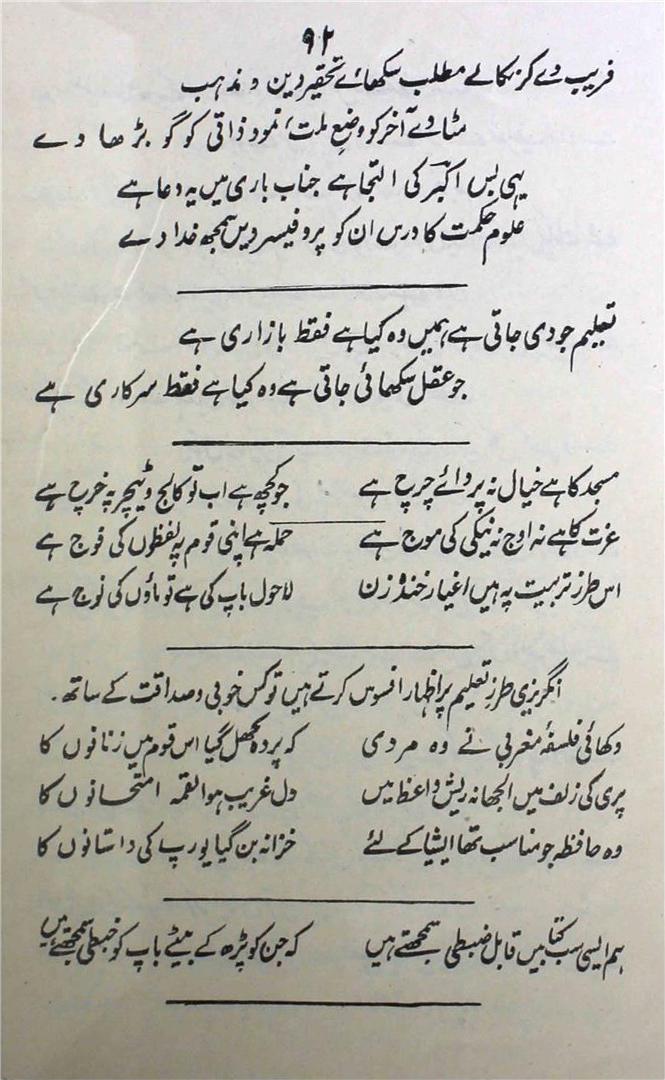 ۹۲
فریب دے کر نکالے مطلب سکھائے تحقیر دین و مذہب
مٹا دے آخر کو وضعِ ملت، نمود ذاتی کو گو بڑھا دے
یہی بس اکبر کی التجا ہے جناب باری میں یہ دعا ہے
علوم حکمت کا درس ان کو پروفیسر دیں سمجھ خدا دے
تعلیم جو دی جاتی ہے ہمیں وہ کیا ہے فقط بازاری ہے
جو عقل سکھائی جاتی ہے وہ کیا ہے فقط سرکاری ہے
مسجد کا ہے خیال نہ پروائے چرچ ہے جو کچھ ہے اب تو کالج و ٹیچر پہ خرچ ہے
عزت کا ہے نہ اوج نہ نیکی کی موج ہے حملہ ہے اپنی قوم پہ لفظوں کی فوج ہے
اس طرز تربیت پہ ہیں اغیار خندہ زن لاحول باپ کی ہے تو ماؤں کی نوج ہے
انگریزی طرز تعلیم پر اظہار افسوس کرتے ہیں تو کس خوبی و صداقت کے ساتھ۔
دکھائی فلسفۂ مغربی نے وہ مردی کہ پردہ کھل گیا اس قوم میں زنانوں کا
پری کی زلف میں الجھا نہ ریش واعظ میں دل غریب ہوا لقمہ امتحانوں کا
وہ حافظہ جو مناسب تھا ایشیا کے لئے خزانہ بن گیا یورپ کی داستانوں کا
ہم ایسی سب کتابیں قابل ضبطی سمجھتے ہیں کہ جن کو پڑھ کے بیٹے باپ کو خبطی سمجھتے ہیں